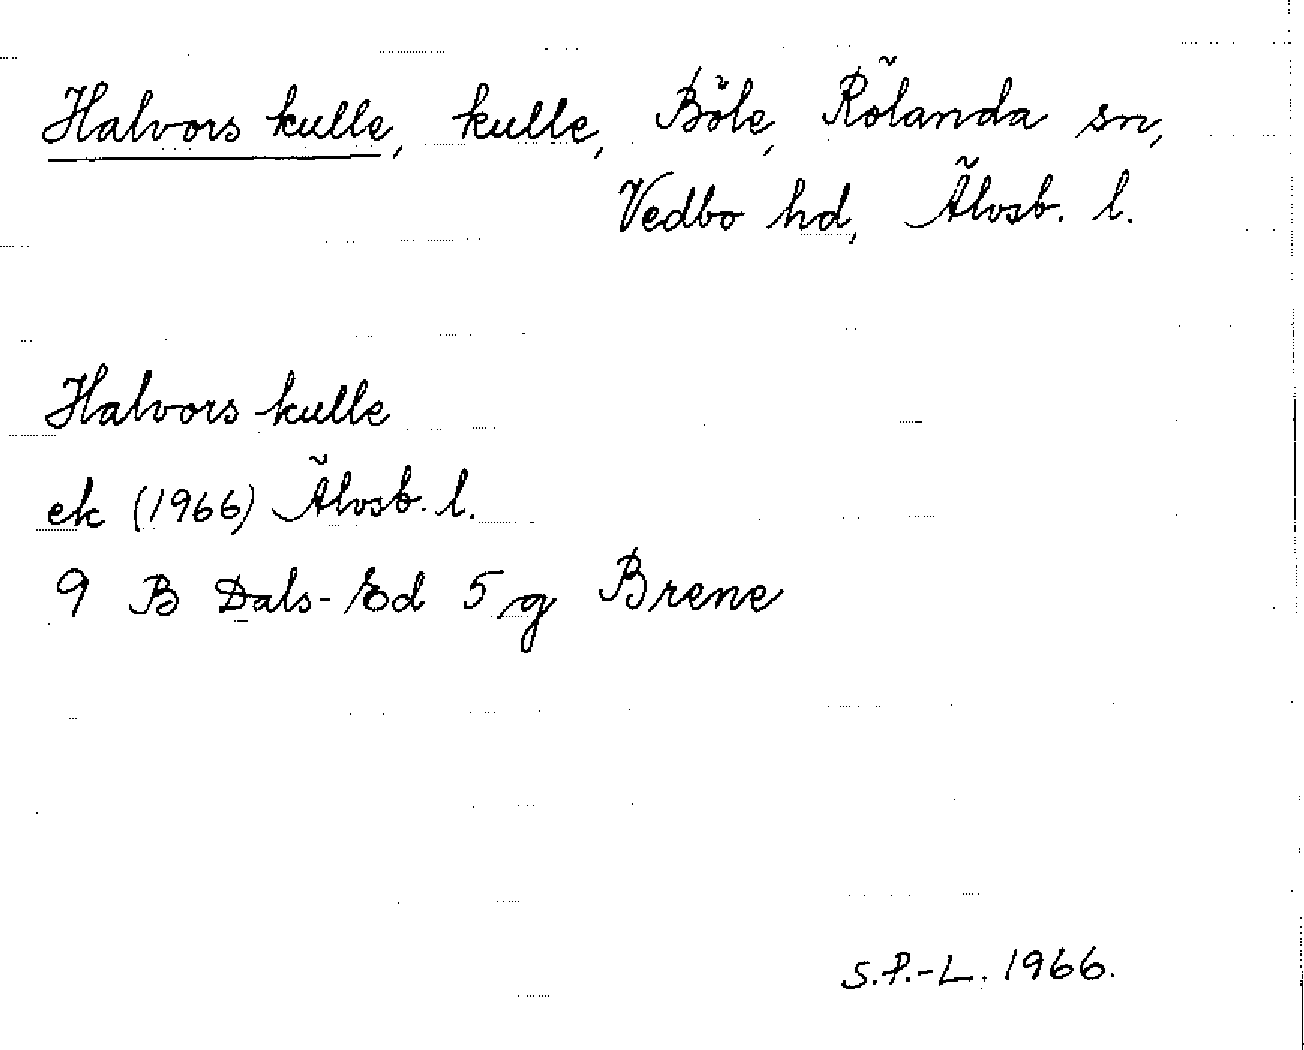 Halvors kulle, kulle, Böle, Rölanda sn,
Vedbo hd, Älvsb. l.
Halvors kulle
ek (1966) Älvsb. l.
9 B Dals-Ed 5 g Brene
S.P.-L. 1966.